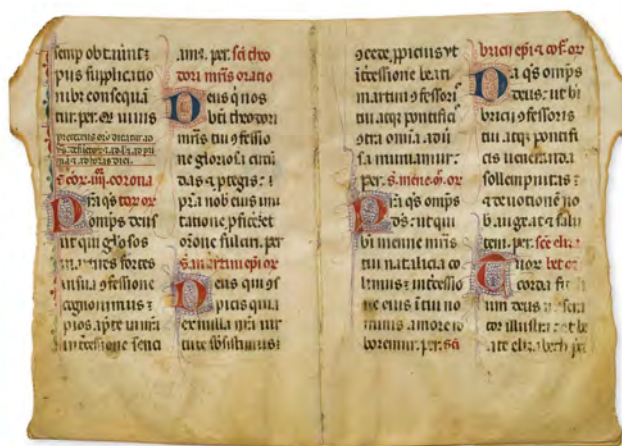 semp obtinniz
pus supplicatio
nibz consequa
tur. per. ex unius
s. cor. iiij. corona
Pra q̃s tor or
omps deus
ut qui glosos
martires fortes
in sua ꝯfessione
cognouimus ⁊
pios apd
intcessione senci
ama. per. sci theo
dori mris oratio
Deus q̃ nos
bti theodori
mris tui ꝯfessio
ne gloriosa circu
das ⁊ ptegis: ⁊
pra nob eius imi
tatione pficet
orone fulciri. per
s. martini epi or
Deus qui ꝯs
picis quia
ex nulla nra uir
tute sbsistimus:
ꝯcede ppicius ut
itcessione beati
martini ꝯfessori
tui atq pontifici
ꝯtra omia adu
sa muniamur:
per. s. mene. or
Pra q̃s omps
ds: ut qui
bi menne mris
tui natalicia co
limus: intcessio
ne eius i tui no
minis amore ro
boremur. per. sci
bricii epi ⁊ cof. or
Da q̃s omps
deus: ut bi
bricii ꝯfessoris
tui atq pontifi
cis ueneranda
sollempnitas: ⁊
⁊ deuotionē no
b augeat ⁊ salu
tem. per. sce eliza
Tuor bet or
corda fi
um deus misera
tor illustra: ⁊ be
ate elizabeth pre